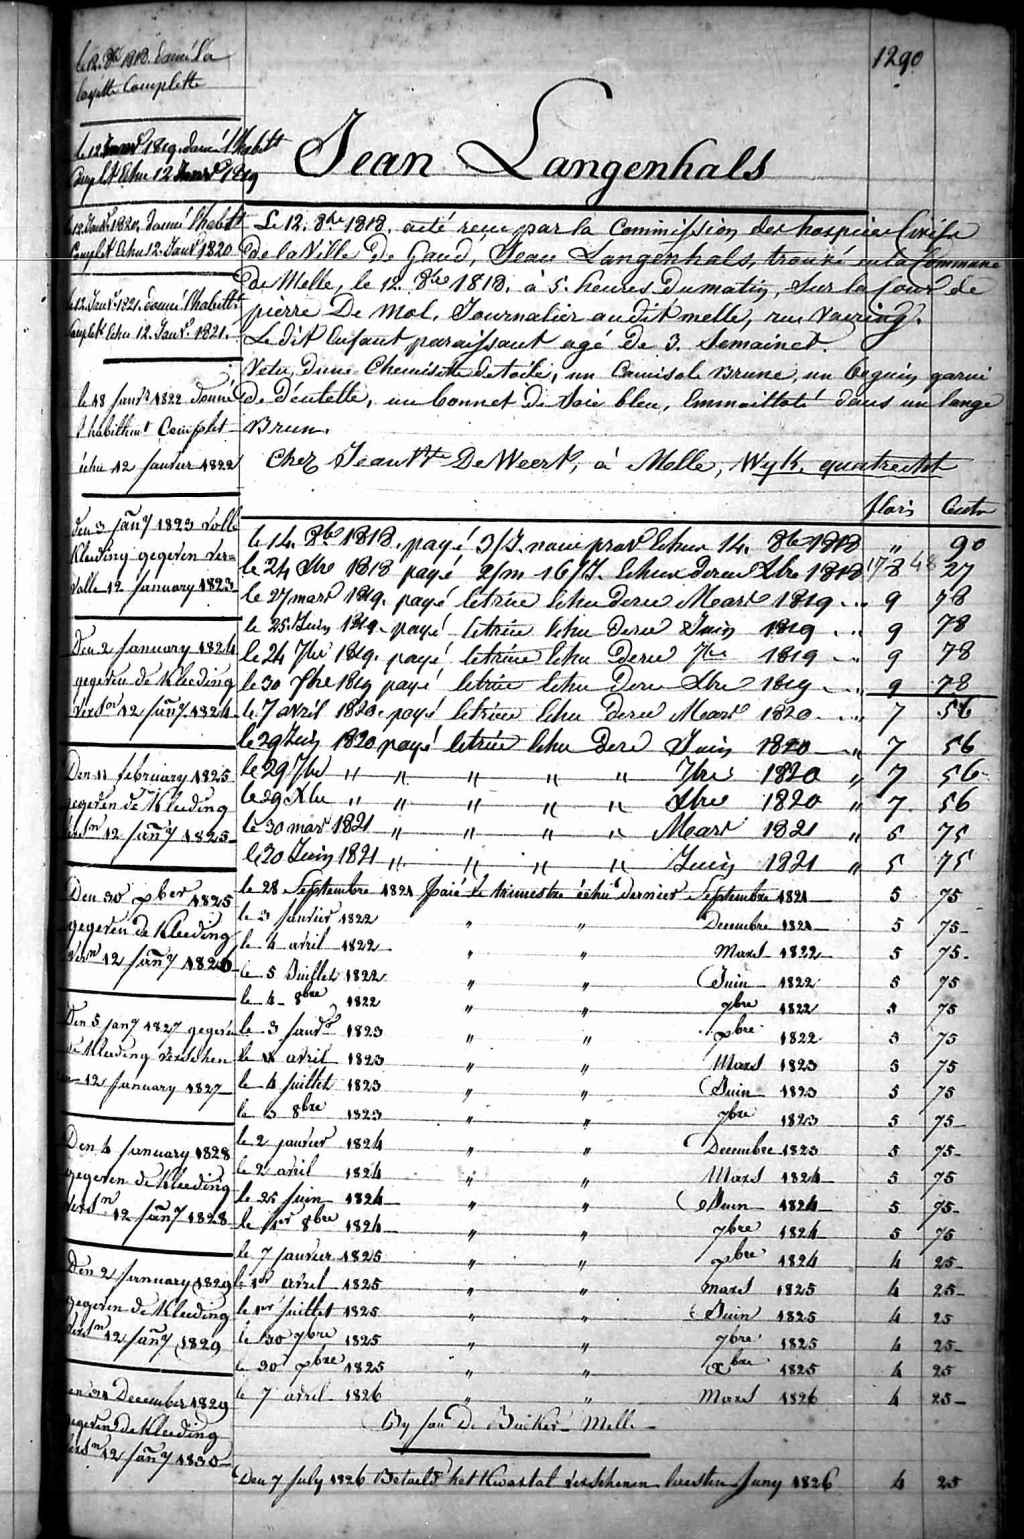 1290
le 12. 8bre 1818. donné la
layette Complette
le 12 Janvr 1819. donné l'habitt
Complet Echu 12 Janvr 1819
le 12. Janvr 1820. donné l'habitt
Complet Echu 12. Janvr 1820
le 12. Janvr 1821. donné l'habitt
Complet Echu 12. Janvr. 1821.
le 18 Janvr 1822 donné
l'habillemt Complet
échu 12 Janvier 1822
Den 3 Jany 1823 volle
Kleeding gegeven ver=
valle 12 January 1823
Den 2 January 1824
gegeven de Kleeding
12 Jany 1824
Den 11 february 1825
gegeven de Kleeding
12 Jany 1825
Den 30 xber 1825
gegeven de Kleeding
12 Jany 1826
Den 5 Jany 1827 gegeven
de Kleeding verschenen
12 January 1827
Den 4 January 1828
gegeven de Kleeding
12 Jany 1828
Den 2 January 1829
gegeven de Kleeding
12 Jany 1829
December 1829
gegeven de Kleeding
12 Jany 1830
Jean Langenhals
Le 12. 8bre 1818. a été reçu par la Commission des hospices Civils
de la Ville de Gand, Jean Langenhals, trouvé en la Commune
de Melle, le 12. 8bre 1818. à 5. heures du matin, sur la
pierre De Mol, Journalier au dit melle, rue
Le dit Enfant paraissant agé de 3. Semaines.
Vetu, d'une Chemisette de toile, un Camisole Brune, un beguin garni
de Déntelle, un bonnet de Soie bleu, Emmaillotté dans un lange
Brun.
Chez Jeanntte De Weert, à Melle, Wyk, quatrecht
flors Cents
le 14. 8bre 1818. payé 3/J. Echus 14. 8bre 1818 " 90
le 24 Xbre 1818 payé 2/m 16/J. Echus dernr Xbre 1818 17 8 48 27
le 27 mars 1819. payé letrice Echu Dernr Mars 1819 9 78
le 25. Juin 1819. payé letrice Echu Dernr Juin 1819 9 78
le 24 7bre 1819. payé letrice Echu Dernr 7bre 1819 9 78
le 30 Xbre 1819 payé letrice Echu Dernr Xbre 1819 9 78
le 7 avril 1820. payé letrice Echu Dernr Mars 1820. 7 56
le 29 Juin 1820 payé letrice Echu Dernr Juin 1820 " 7 56
le 29 7bre " " " " " 7bre 1820 " 7 56
le 29 Xbre " " " " " Xbre 1820 " 7 56
le 30 mars 1821 " " " " Mars 1821 " 5 75
le 30 Juin 1821 " " " " Juin 1821 " 5 75
le 28 Septembre 1821 paié le trimestre échu dernier Septembre 1821 5 75
le 3 janvier 1822 " " Decembre 1821 5 75
le 4 avril 1822 " " Mars 1822 5 75
le 5 Juillet 1822 " " Juin 1822 5 75
le 4 8bre 1822 " " 7bre 1822 5 75
le 3 janvr 1823 " " xbre 1822 5 75
le avril 1823 " " Mars 1823 5 75
le 4 juillet 1823 " " Juin 1823 5 75
le 3 8bre 1823 " " 7bre 1823 5 75
le 2 janvier 1824 " " Decembre 1823 5 75
le 2 avril 1824 " " Mars 1824 5 75
le 25 juin 1824 " " Juin 1824 5 75
le 1er 8bre 1824 " " 7bre 1824 5 75
le 7 janvier 1825 " " xbre 1824 4 25
le 1er avril 1825 " " mars 1825 4 25
le 1er juillet 1825 " " Juin 1825 4 25
le 30 7bre 1825 " " 7bre 1825 4 25
le 30 xbre 1825 " " Xbre 1825 4 25
le 7 avril 1826 " " Mars 1826 4 25
By Jan De Bucker Melle
Den 7 July 1826 Betaeld het Kwartal verschenen laesten Juny 1826 4 25